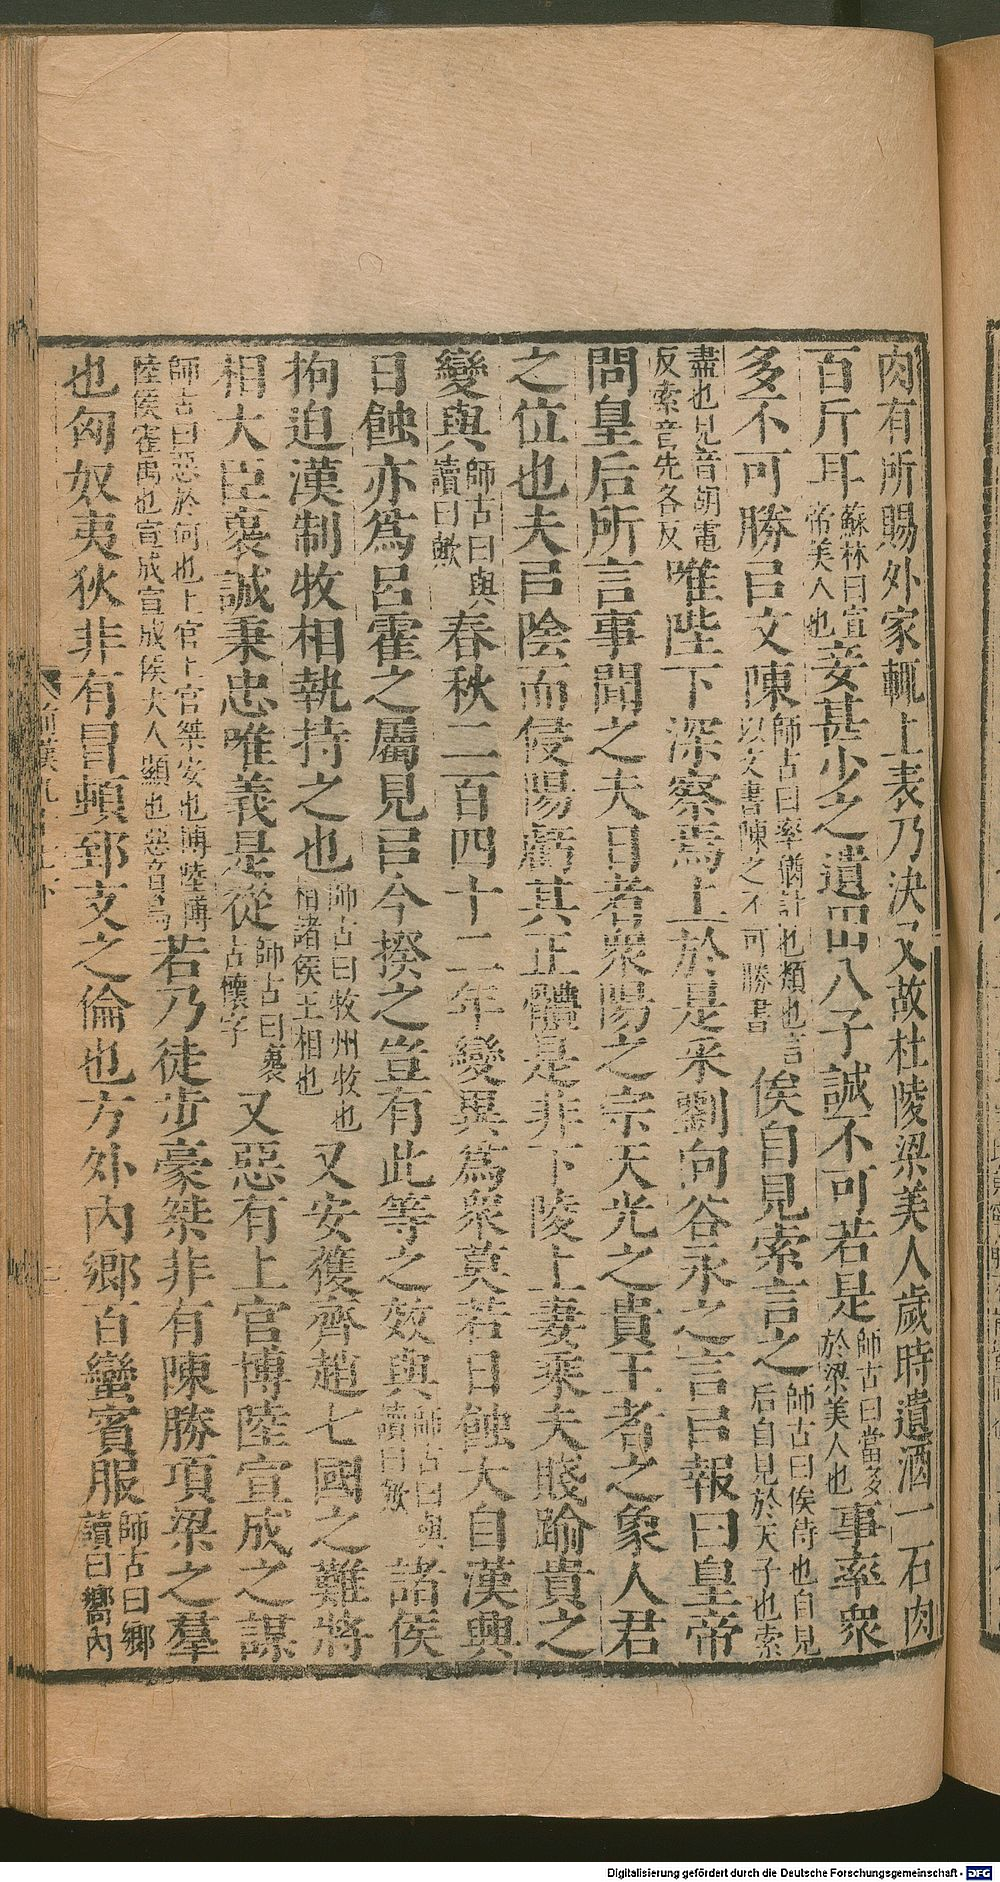 肉有所賜外家輒上表乃決又故杜陵梁美人歲時遺酒一石肉
百斤耳蘇林曰宣帝美人也妾甚少之遺田八子誠不可若是師古曰當多於梁美人也事率衆
多不可勝㠯文陳師古曰率猶計也類也言以文書陳之不可勝書俟自見索言之師古曰俟待也自見后自見於天子也索
盡也見音胡電反索音先各反唯陛下深察焉上於是采劉向谷永之言㠯報曰皇帝
問皇后所言事聞之夫日者衆陽之宗天光之貴王者之象人君
之位也夫㠯陰而侵陽虧其正體是非下陵上妻乘夫賤踰貴之
變與師古曰與讀曰歟春秋二百四十二年變異爲衆莫若日蝕大自漢興
日蝕亦爲呂霍之屬見㠯今揆之豈有此等之效與師古曰與讀曰歟諸侯
拘迫漢制牧相執持之也師古曰牧州牧也相諸侯王相也又安獲齊趙七國之難將
相大臣褱誠秉忠唯義是從師古曰褱古懷字又惡有上官博陸宣成之謀
師古曰惡於何也上官上官桀安也博陸博陸侯霍禹也宣成宣成侯夫人顯也惡音烏若乃徒步豪桀非有陳勝項梁之羣
也匈奴夷狄非有冒頓郅支之倫也方外內鄉百蠻賓服師古曰鄉讀曰嚮內
前漢九十七下
Digitalisierung gefördert durch die Deutsche Forschungsgemeinschaft - DFG